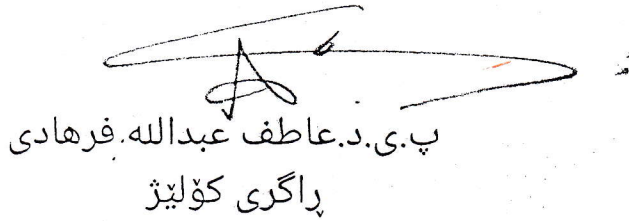 پ.ی.د.عاطف عبدالله فرهادی
ڕاگری کۆلێژ